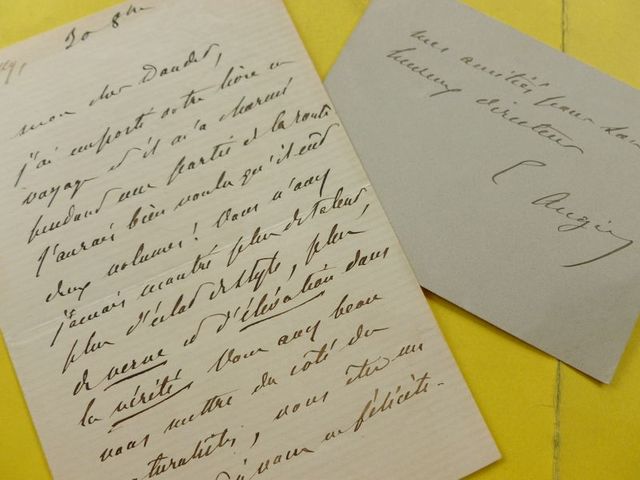 30 8bre
mon cher Daudet,
j'ai emporté votre livre en
voyage et il m'a charmé
pendant une partie de la route
J'aurais bien voulu qu'il eût
deux volumes! Vous n'avez
jamais montré plus de talent,
plus d'éclat de style, plus
de verve et d'élévation dans
la vérité. Vous avez beau
vous mettre du côté du
naturalistes, vous êtes un
vous en félicite-
mes amitiés, pour
heureux directeur
E Augier